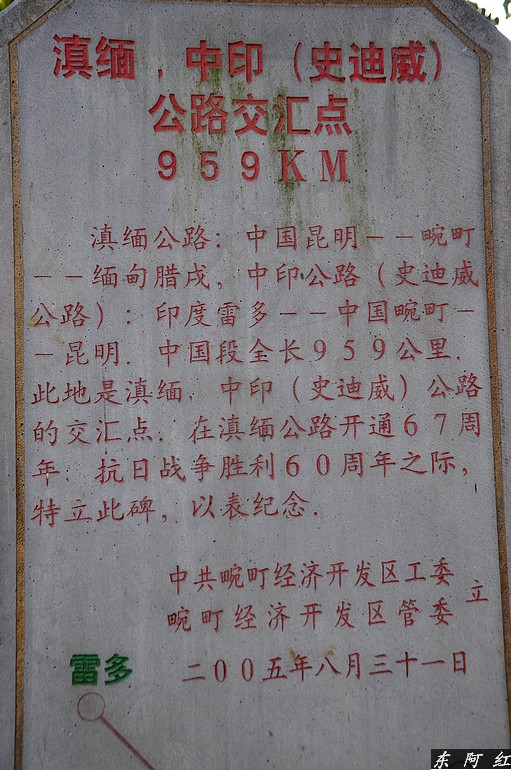 滇缅．中印（史迪威）
公路交汇点
959KM
滇缅公路：中国昆明－－畹町
－－缅甸腊戌，中印公路（史迪威
公路）：印度雷多－－中国畹町－
－昆明．中国段全长959公里．
此地是滇缅．中印（史迪威）公路
的交汇点．在滇缅公路开通67周
年．抗日战争胜利60周年之际，
特立此碑，以表纪念．
中共畹町经济开发区工委
畹町经济开发区管委
立
二00五年八月三十一日
雷多
东阿红